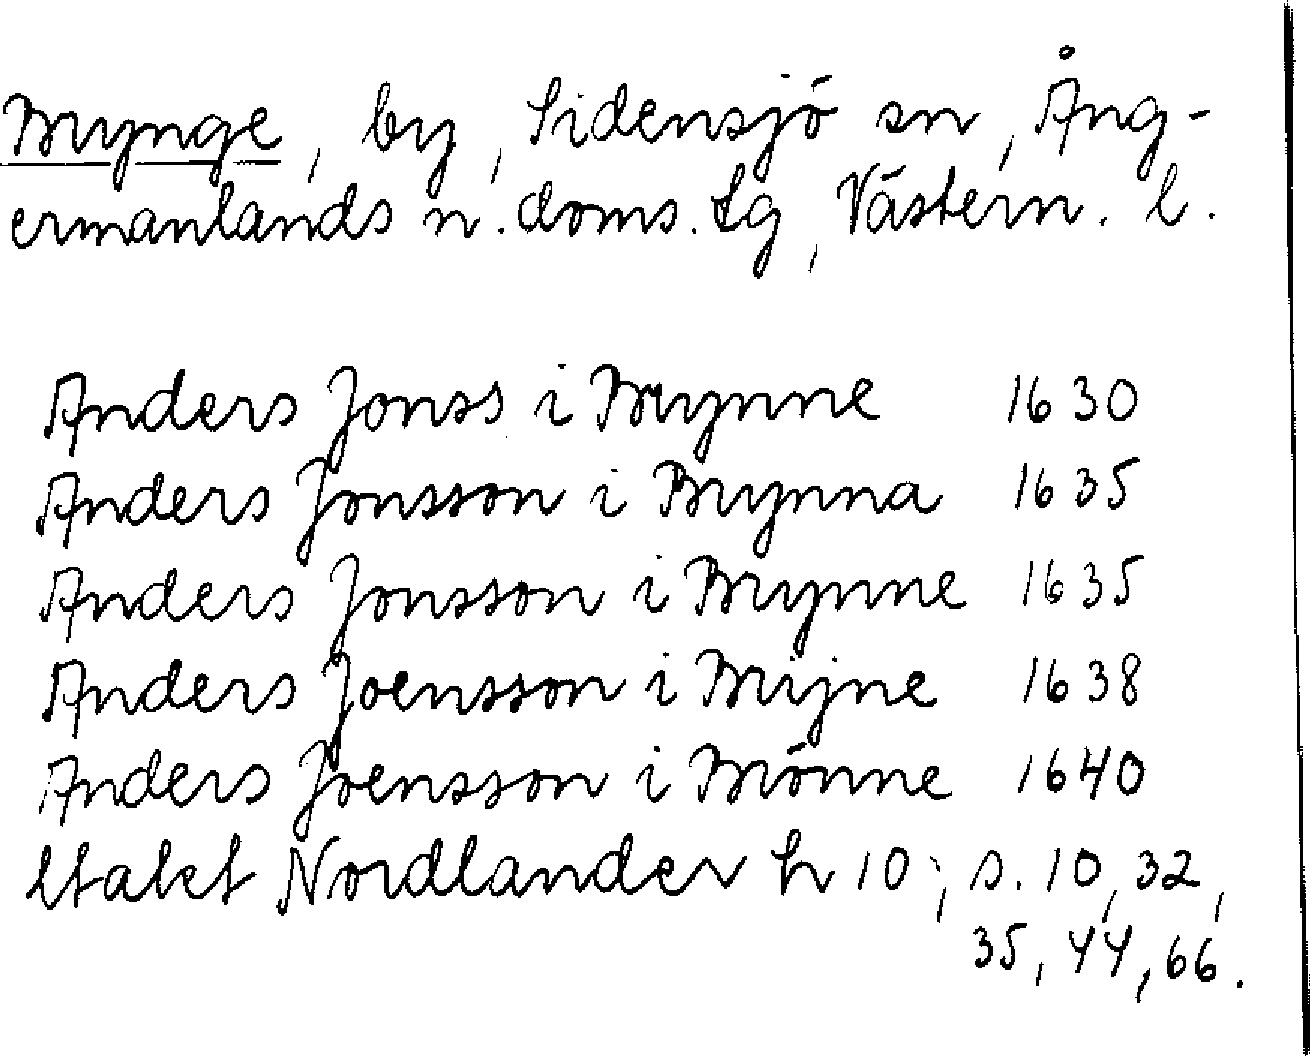 Brynge, by, Sidensjö sn, Ång-
ermanlands n. doms. tg, Västern. l.
Anders Jonss i Brynne 1630
Anders Jonsson i Brynna 1635
Anders Jonsson i Brynne 1635
Anders Joensson i Brijne 1638
Anders Joensson i Brönne 1640
Nordlander h 10; s. 10, 32,
35, 44, 66.